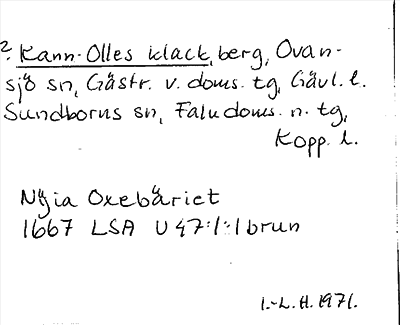 ?. Kann-Olles klack, berg, Ovan-
sjö sn, Gästr. v. doms. tg, Gävl. l.
Sundborns sn, Falu doms. n. tg,
Kopp. l.
Nÿia Oxebäriet
1667 LSA U 47:1:1 brun
I.-L. H. 1971.